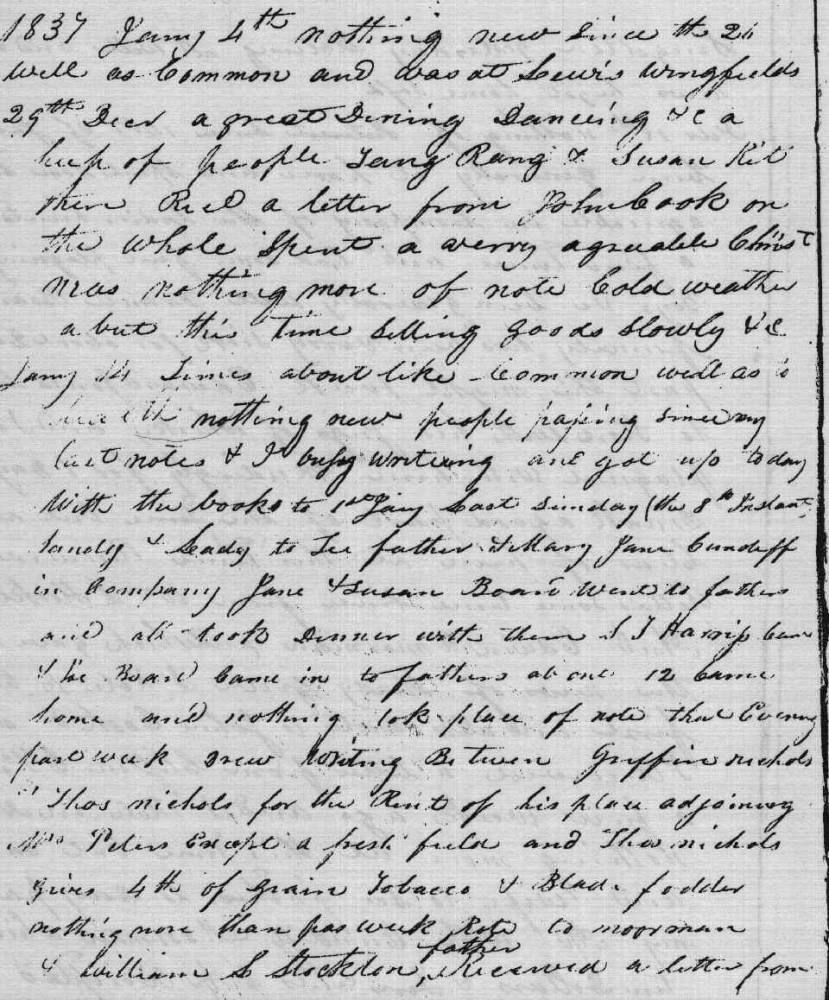 1837 Jany 4th nothing new since the 26
well as Common and was at Lewis Wingfields
29th Decr a great Dining Dancing &c a
heep of people Tang Rang & Susan Kit
there Recd a letter from John Cook on
the whole Spent a verry agreeable Christ
mas nothing more of note Cold weather
a but this time Selling goods Slowly &c
Jany 14 Times about like Common well as to
health nothing new people passing since my
last notes & I busy writeing and got up to day
With the books to 1st Jany Last Sunday (the 8th Instant
landy & Leady to See father & Mary Jane Cundiff
in Company Jane & Susan Board Went to fathers
and all took Dinner with them S T Harris Came
& Board Came in to fathers at one 12 Came
home and nothing tok place of note that Evening
past week Drew Writing Between Griffin nichols
" Thos nichols for the Rent of his place adjoining
Mrs Peters Except a fresh field and Thos nichols
gives 4th of grain Tobacco & Blade fodder
nothing more than pas week Rote to moorman
& William S Stockton, father Received a letter from